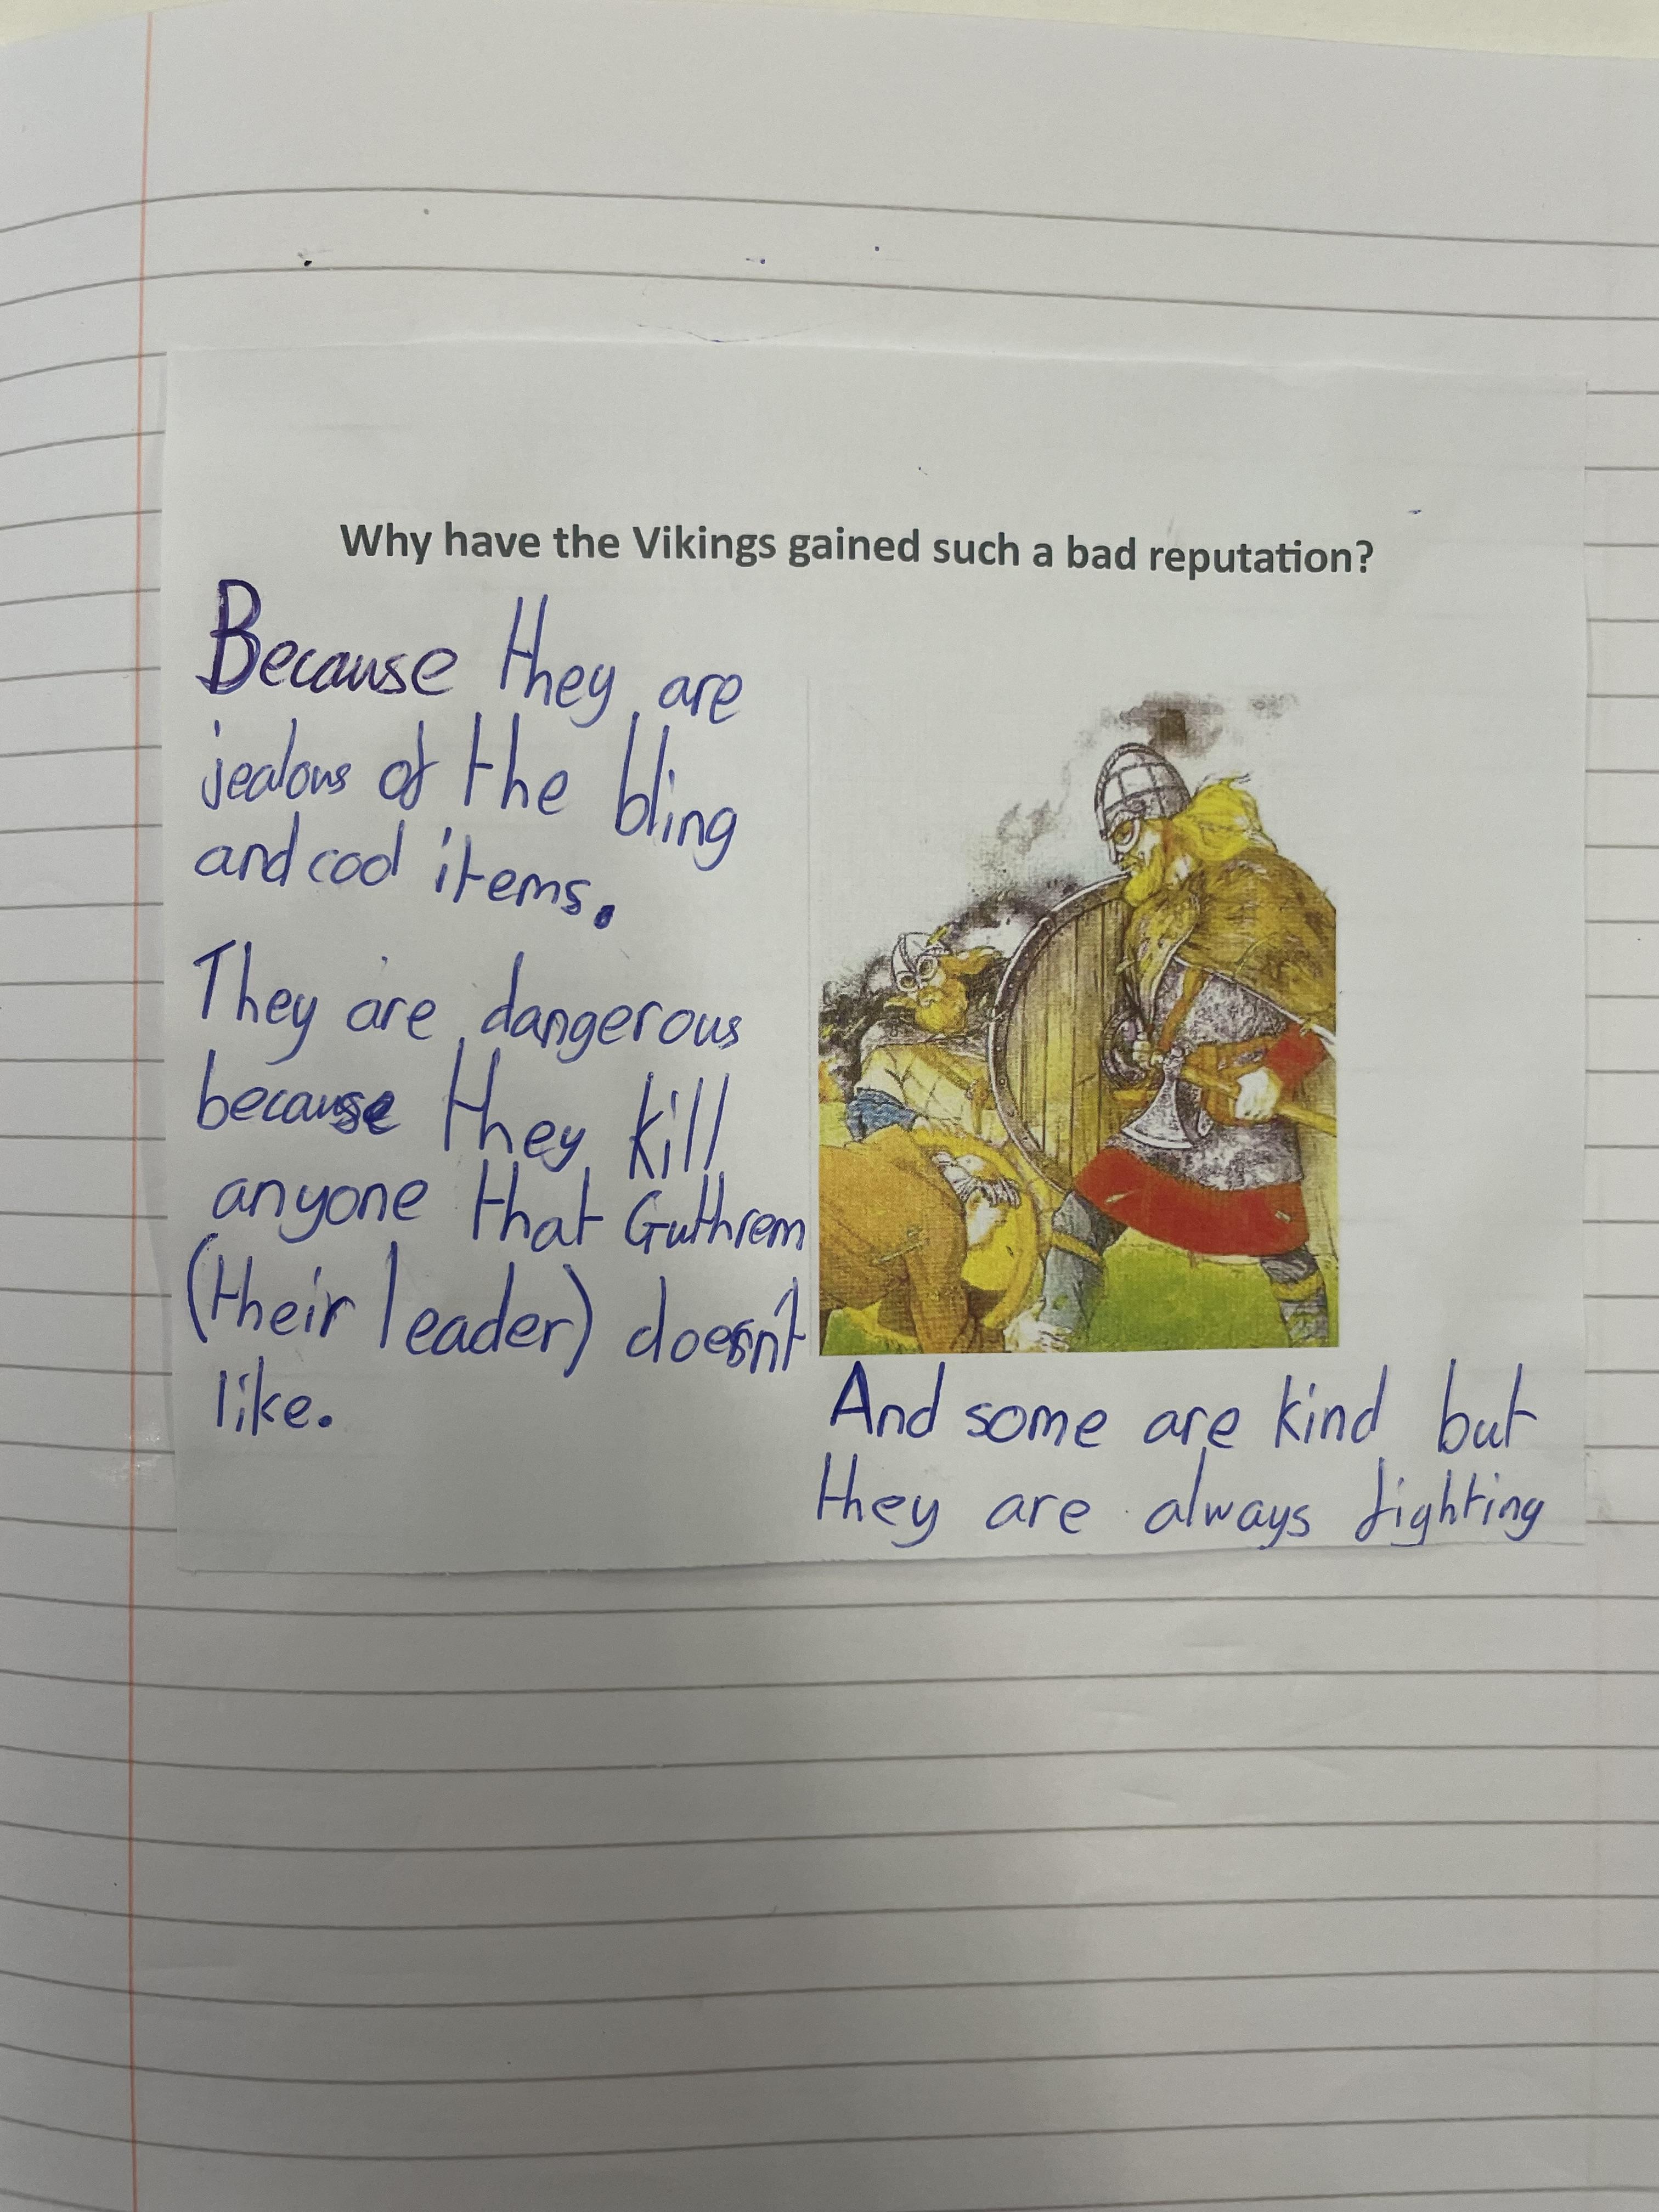 Why have the Vikings gained such a bad reputation?
Because they are
jealous of the bling
and cool items.
They are dangerous
because they kill
anyone that Guthrem
(their leader) doesn't
like.
And some are kind but
they are always fighting